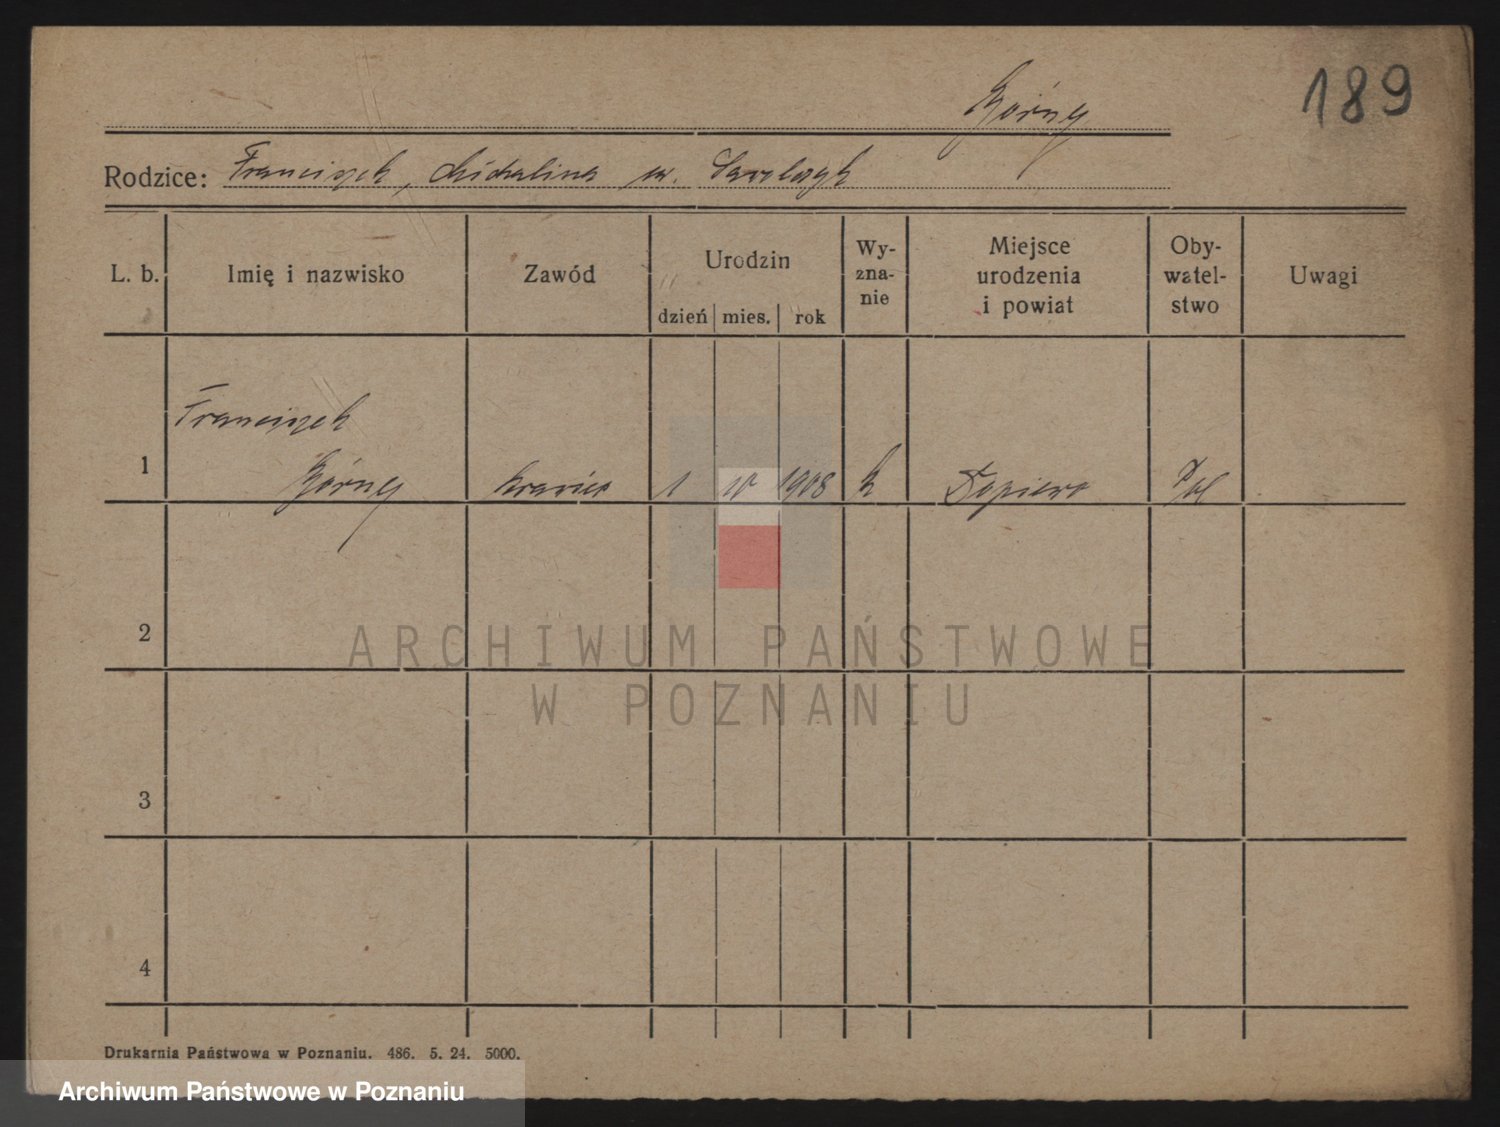 189
Górny
Rodzice: Franciszek, Michalina z d.
L. b. Imię i nazwisko Zawód Urodzin dzień mies. rok Wy-zna-nie Miejsce urodzenia i powiat Oby-watel-stwo Uwagi
Franciszek
1 Górny krawiec 1 10 1908 k Pol
2
3
4
Drukarnia Państwowa w Poznaniu. 486. 5. 24. 5000.
ARCHIWUM PAŃSTWOWE
W POZNANIU
Archiwum Państwowe w Poznaniu